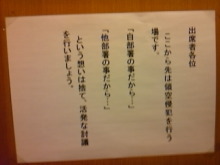 出席者各位
ここから先は領空侵犯を行う
場です。
『自部署の事だから…』
『他部署の事だから…』
という想いは捨て、活発な討議
を行いましょう。